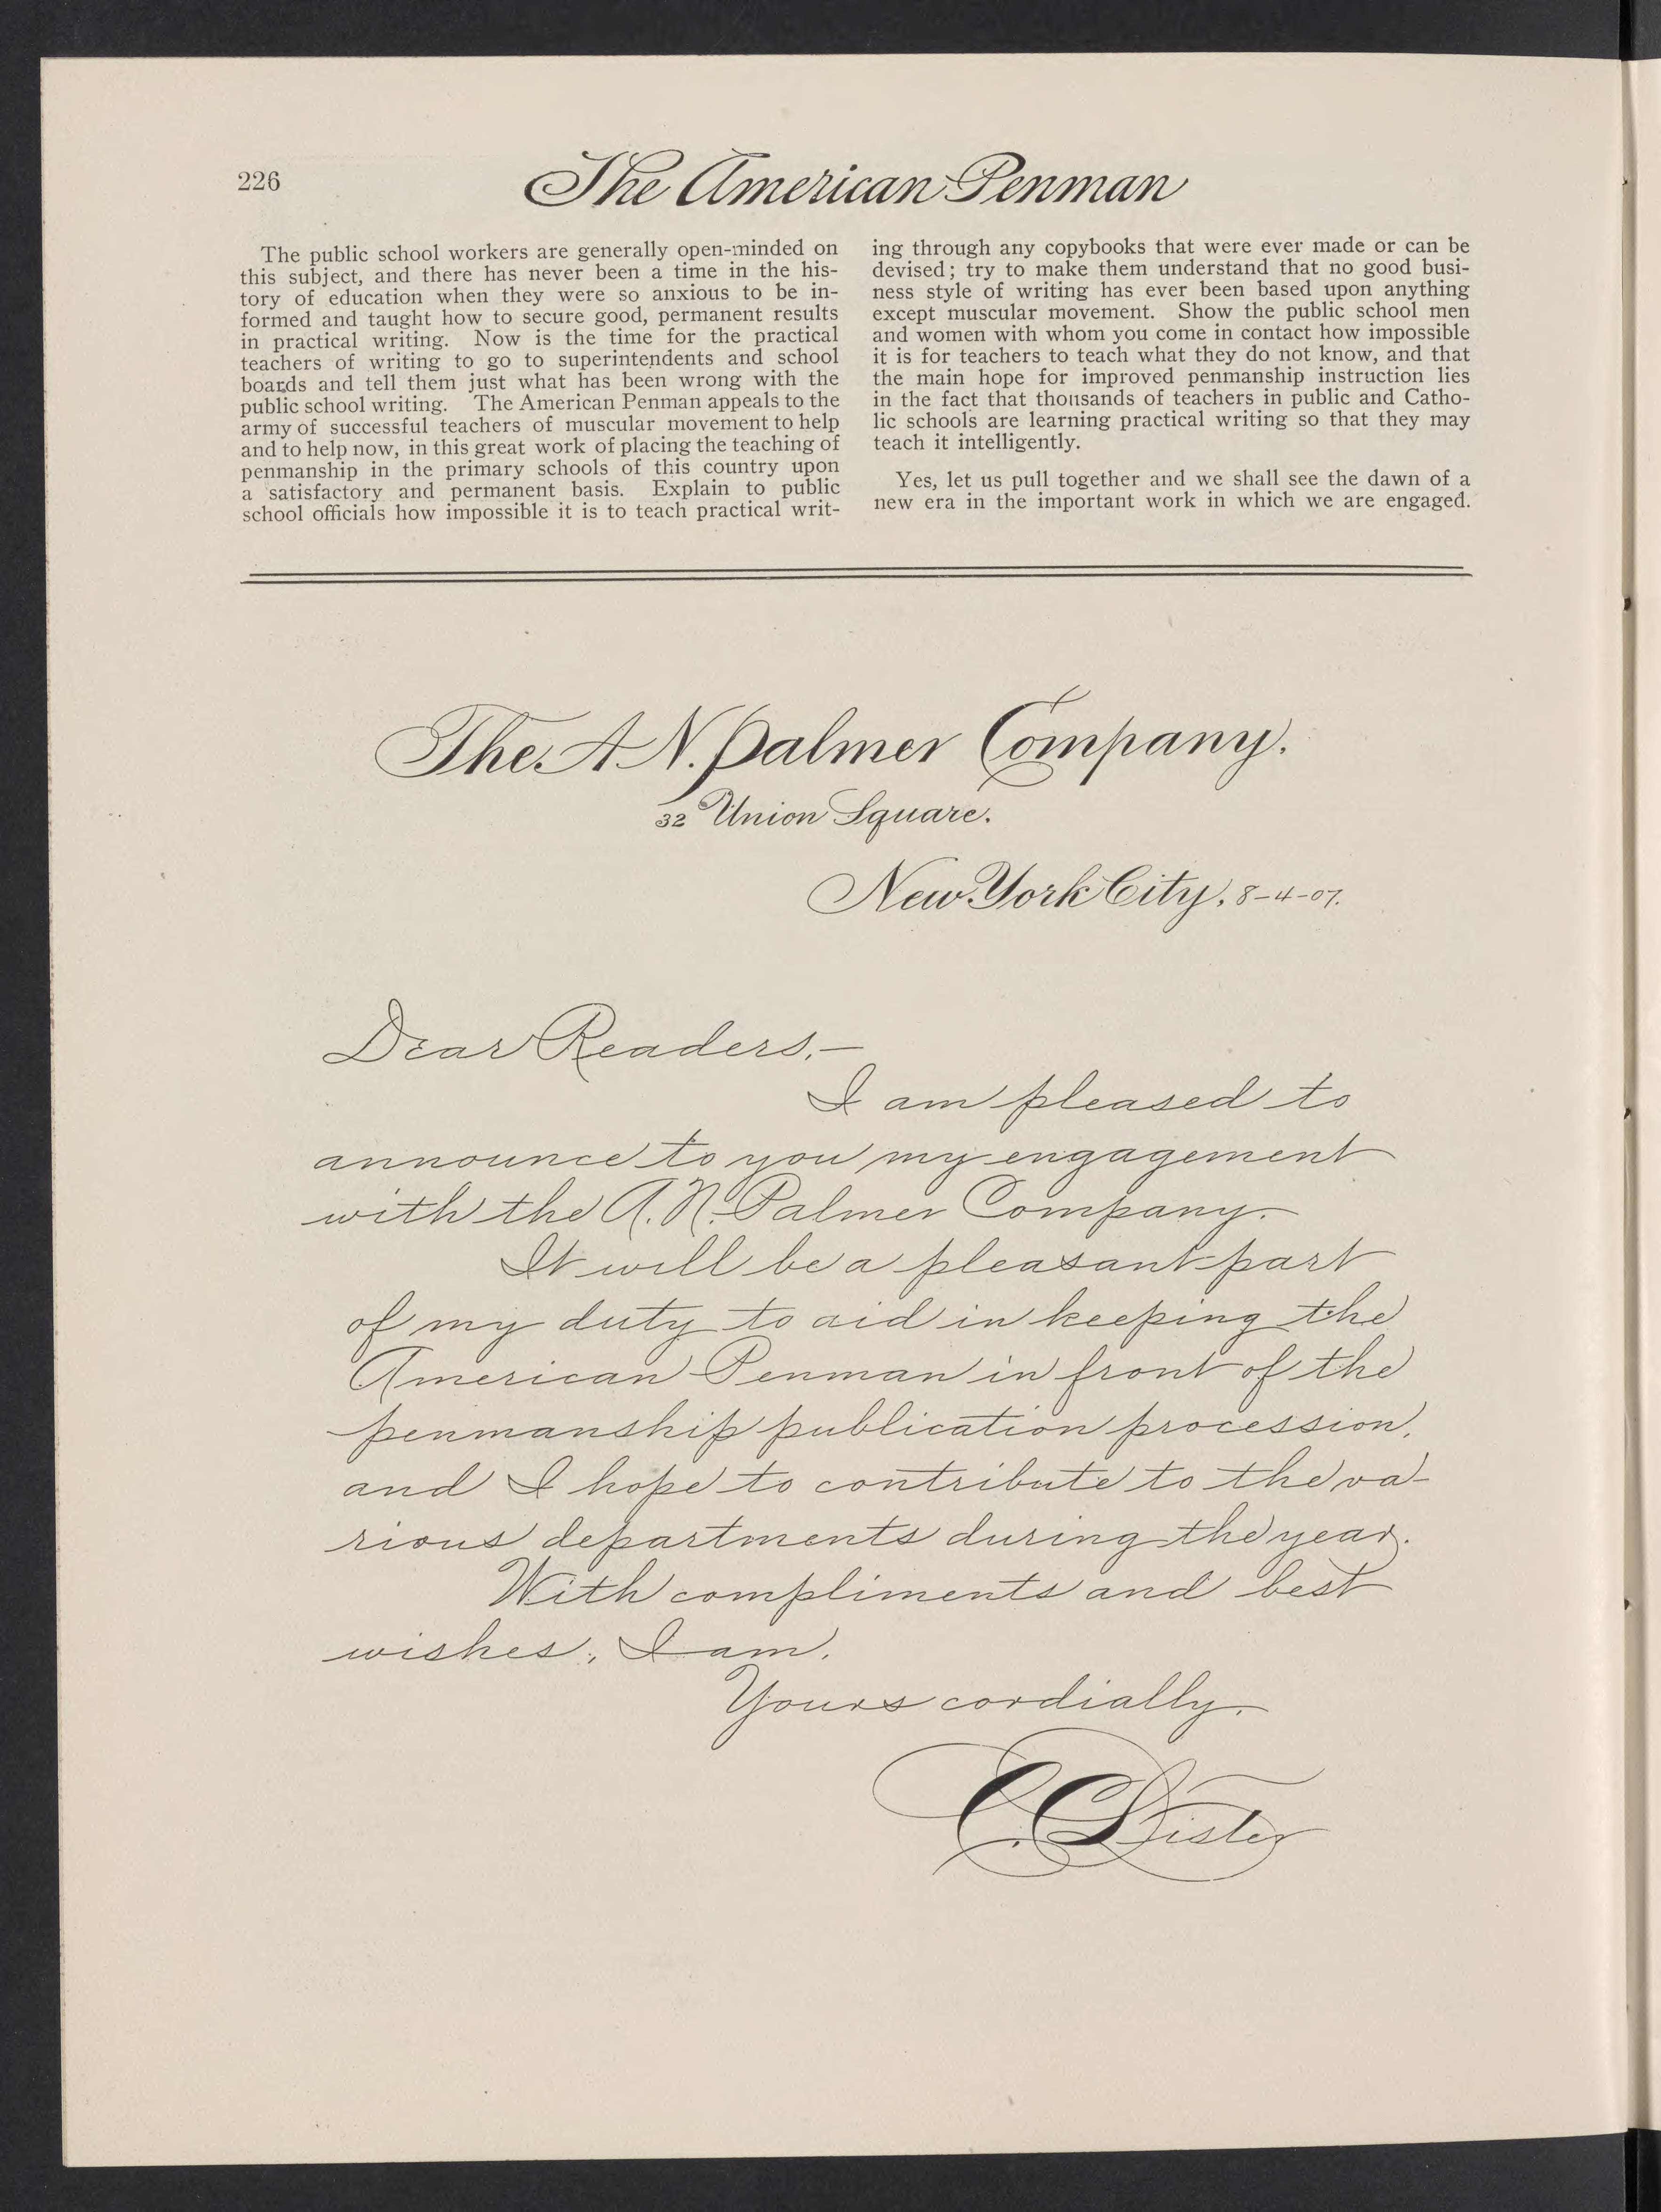 226
The American Penman
The public school workers are generally open-minded on
this subject, and there has never been a time in the his-
tory of education when they were so anxious to be in-
formed and taught how to secure good, permanent results
in practical writing. Now is the time for the practical
teachers of writing to go to superintendents and school
boards and tell them just what has been wrong with the
public school writing. The American Penman appeals to the
army of successful teachers of muscular movement to help
and to help now, in this great work of placing the teaching of
penmanship in the primary schools of this country upon
a satisfactory and permanent basis. Explain to public
school officials how impossible it is to teach practical writ-
ing through any copybooks that were ever made or can be
devised; try to make them understand that no good busi-
ness style of writing has ever been based upon anything
except muscular movement. Show the public school men
and women with whom you come in contact how impossible
it is for teachers to teach what they do not know, and that
the main hope for improved penmanship instruction lies
in the fact that thousands of teachers in public and Catho-
lic schools are learning practical writing so that they may
teach it intelligently.
Yes, let us pull together and we shall see the dawn of a
new era in the important work in which we are engaged.
The A. N. Palmer Company.
32 Union Square.
New York City, 8-4-07.
Dear Readers,—
I am pleased to
announce to you my engagement
with the A. N. Palmer Company.
It will be a pleasant part
of my duty to aid in keeping the
American Penman in front of the
penmanship publication procession,
and I hope to contribute to the va-
rious departments during the year.
With compliments and best
wishes, I am,
Yours cordially,
C. C. Lister